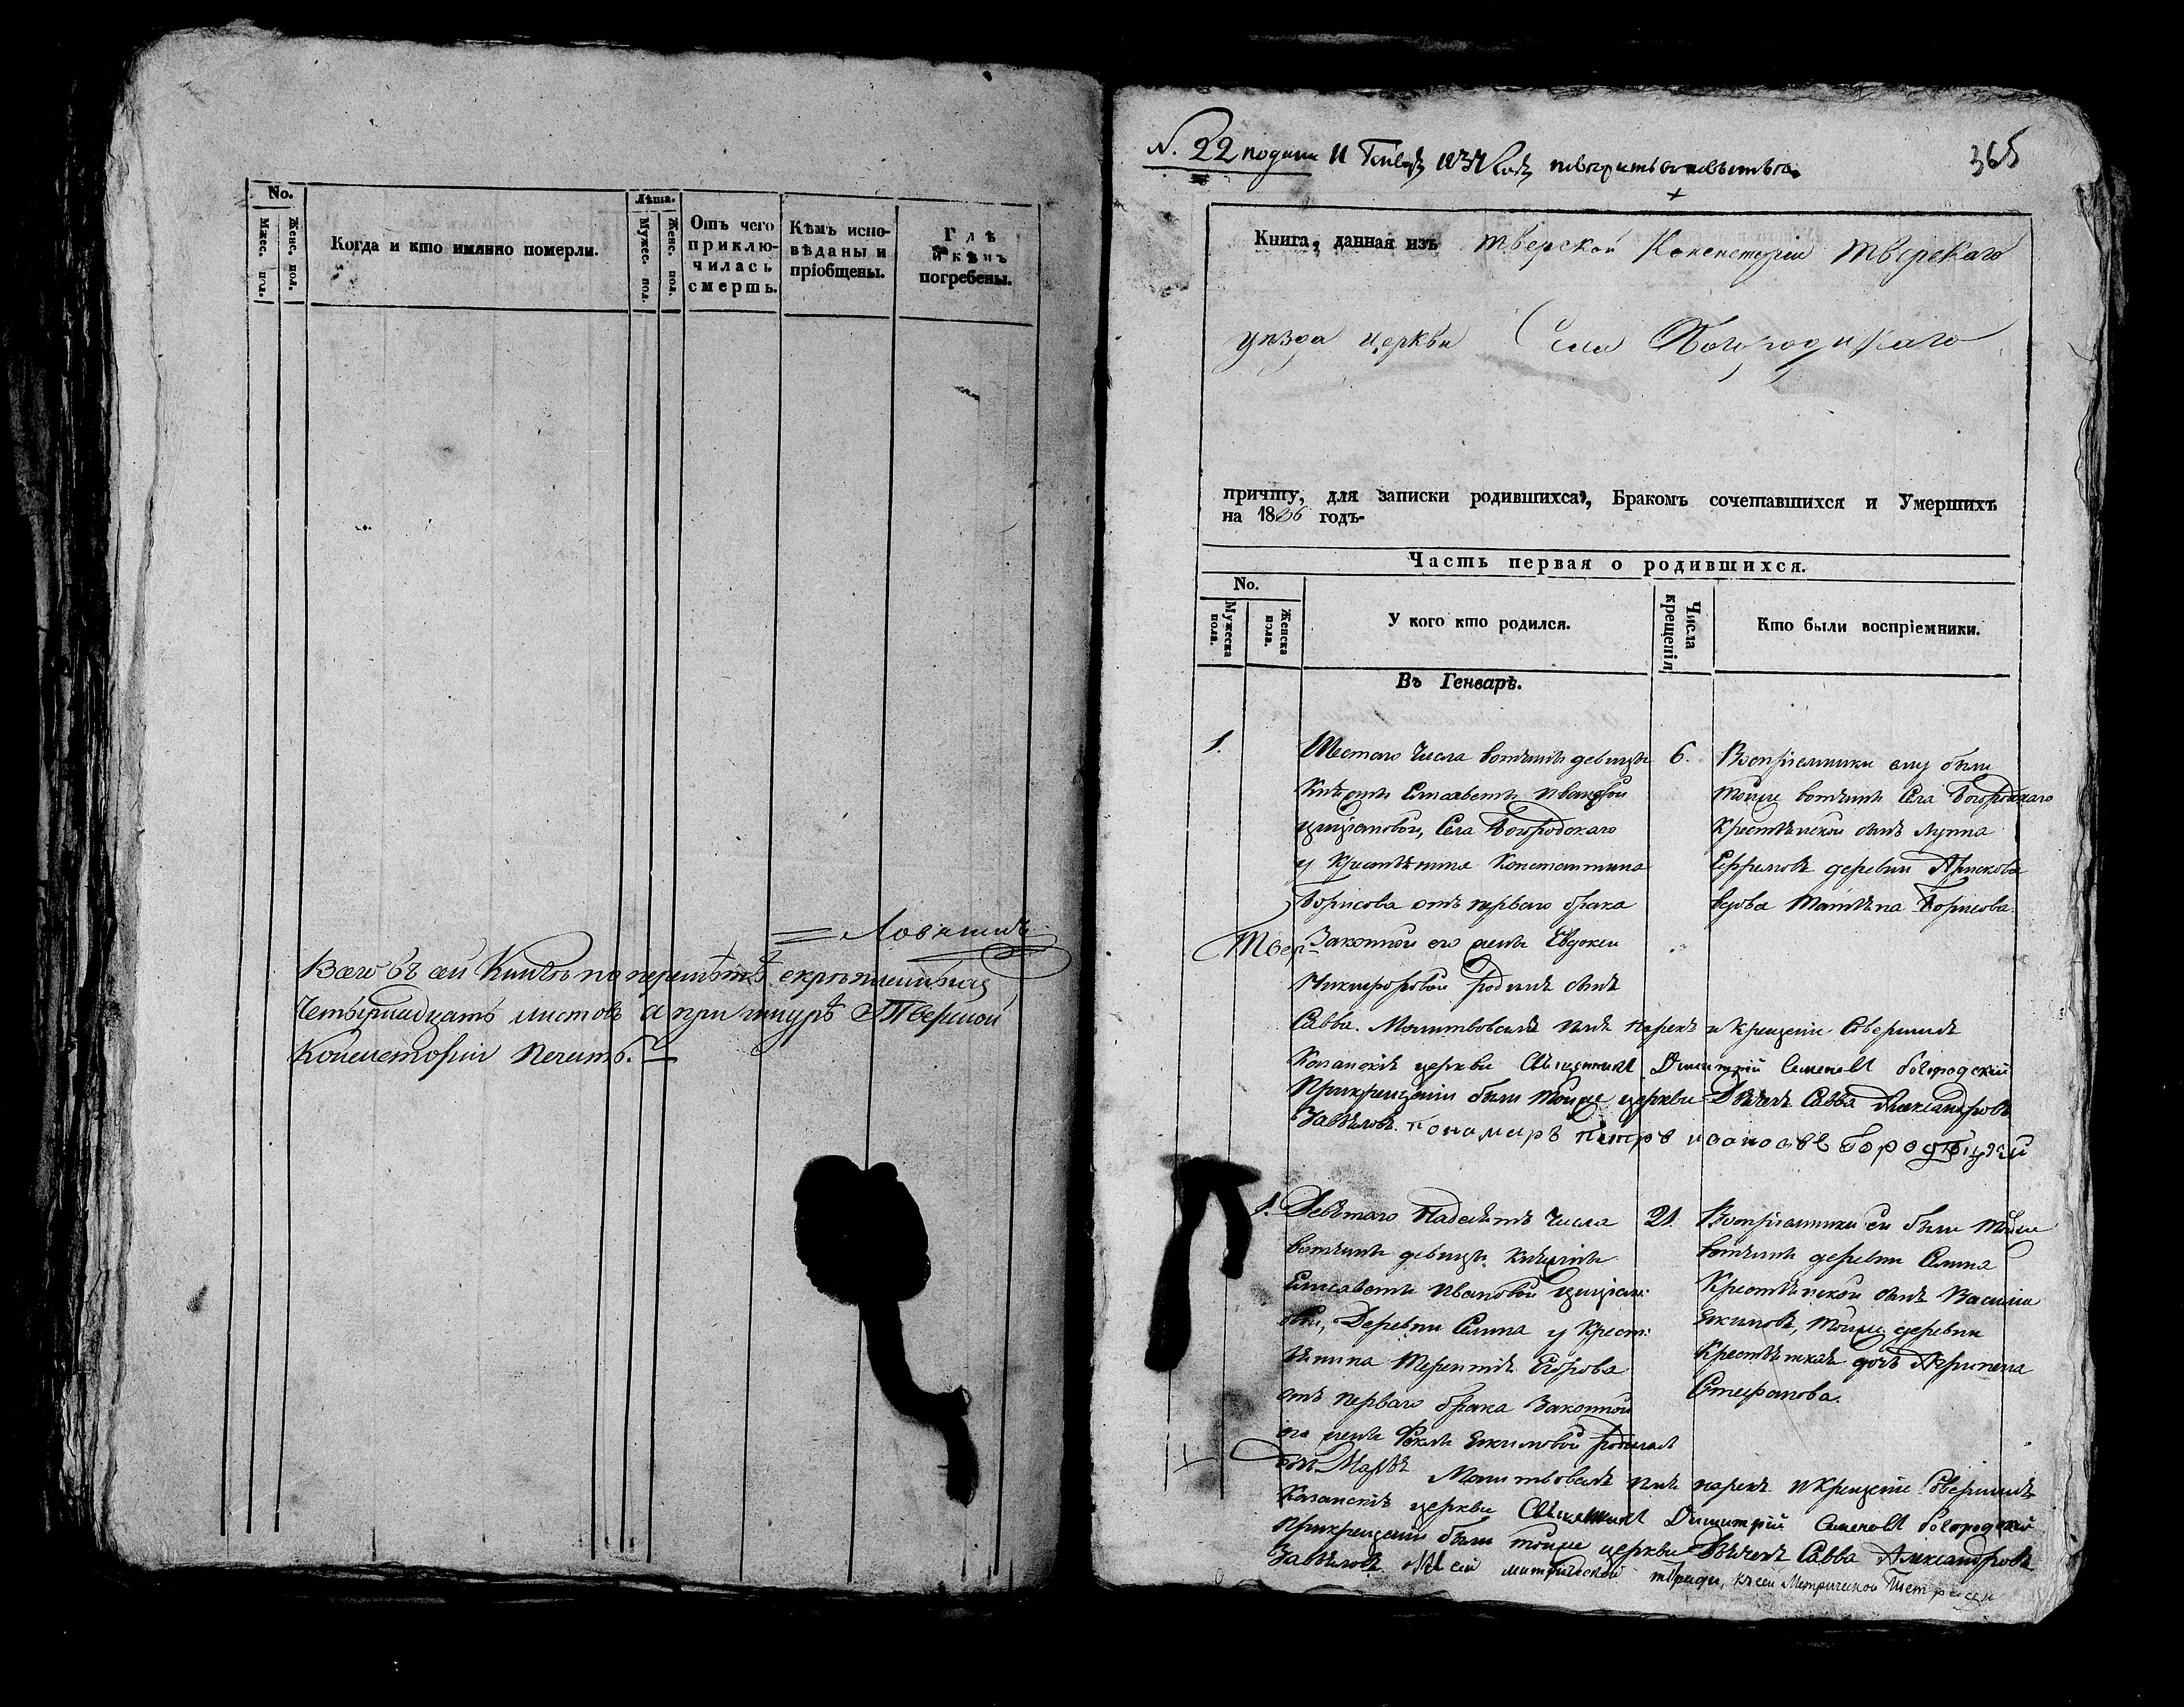 No.
Мжес. пол.
Женс. пол.
Когда и кто имянно померли.
Лѣта.
Мужес. пол.
Женс. пол.
Отъ чего
приклю-
чилась
смерть.
Кѣмъ испо-
вѣданы и
пріобщены.
Гдѣ
и кѣмъ
погребены.
Всего въ сей Книгѣ по перемѣтѣ скрѣпленныхъ
Четырнадцать листовъ а при шнурѣ Тверской
Консисторіи печать.
N. 22 Генвр 1837 года
365
Книга, данная изъ Тверской Консисторіи Тверскаго
уѣзда церкви Села Богородскаго
причту, для записки родившихся, Бракомъ сочетавшихся и Умершихъ
на 1836 годъ
Часть первая о родившихся.
No.
Мужеска пола.
Женска пола.
У кого кто родился.
Числа крещенія
Кто были воспріемники.
Въ Генварѣ.
1.
Шестаго числа вотчины девицы
Княжны Елисаветы Ивановой
Циціановой, Села Богородскаго
у Крестьянина Константина
Борисова отъ перваго брака
Законной его жены Евдокеи
Никифоровой родился сынъ
Савва. Молитвовалъ имя нарекъ и крещеніе совершилъ
Казанскія церкви Священникъ Димитрій Семеновъ Богородский
При крещеніи были тойже церкви Дьячекъ Савва Александровъ
Завьяловъ. пономарь петръ
6.
Воспріемники ему были
тойже вотчины Села Богородскаго
Крестьянской сынъ Луппа
Ефремовъ деревни
вдова Татьяна Борисова.
Твер
1.
Девятаго надесять числа
вотчины девицы Княжны
Елисаветы Ивановой Циціан:
овой, Деревни Селина у Крест:
ьянина Терентія Егорова
отъ перваго брака Законной
его жены Феклы Екимовой родилась
дочь Марья Молитвовалъ имя нарекъ и крещеніе совершилъ
Казанскія церкви Священникъ Димитрій Семеновъ Богородский
При крещеніи были тойже церкви Дьячекъ Савва Александровъ
Завьяловъ къ сей метрической тетради, къ сей Метрической Тетради
21.
Воспріемники ей были тойже
вотчины деревни Селина
Крестьянской сынъ Василий
Екимовъ, тойже деревни
Крестьянская дочь Агрипена
Стефанова.